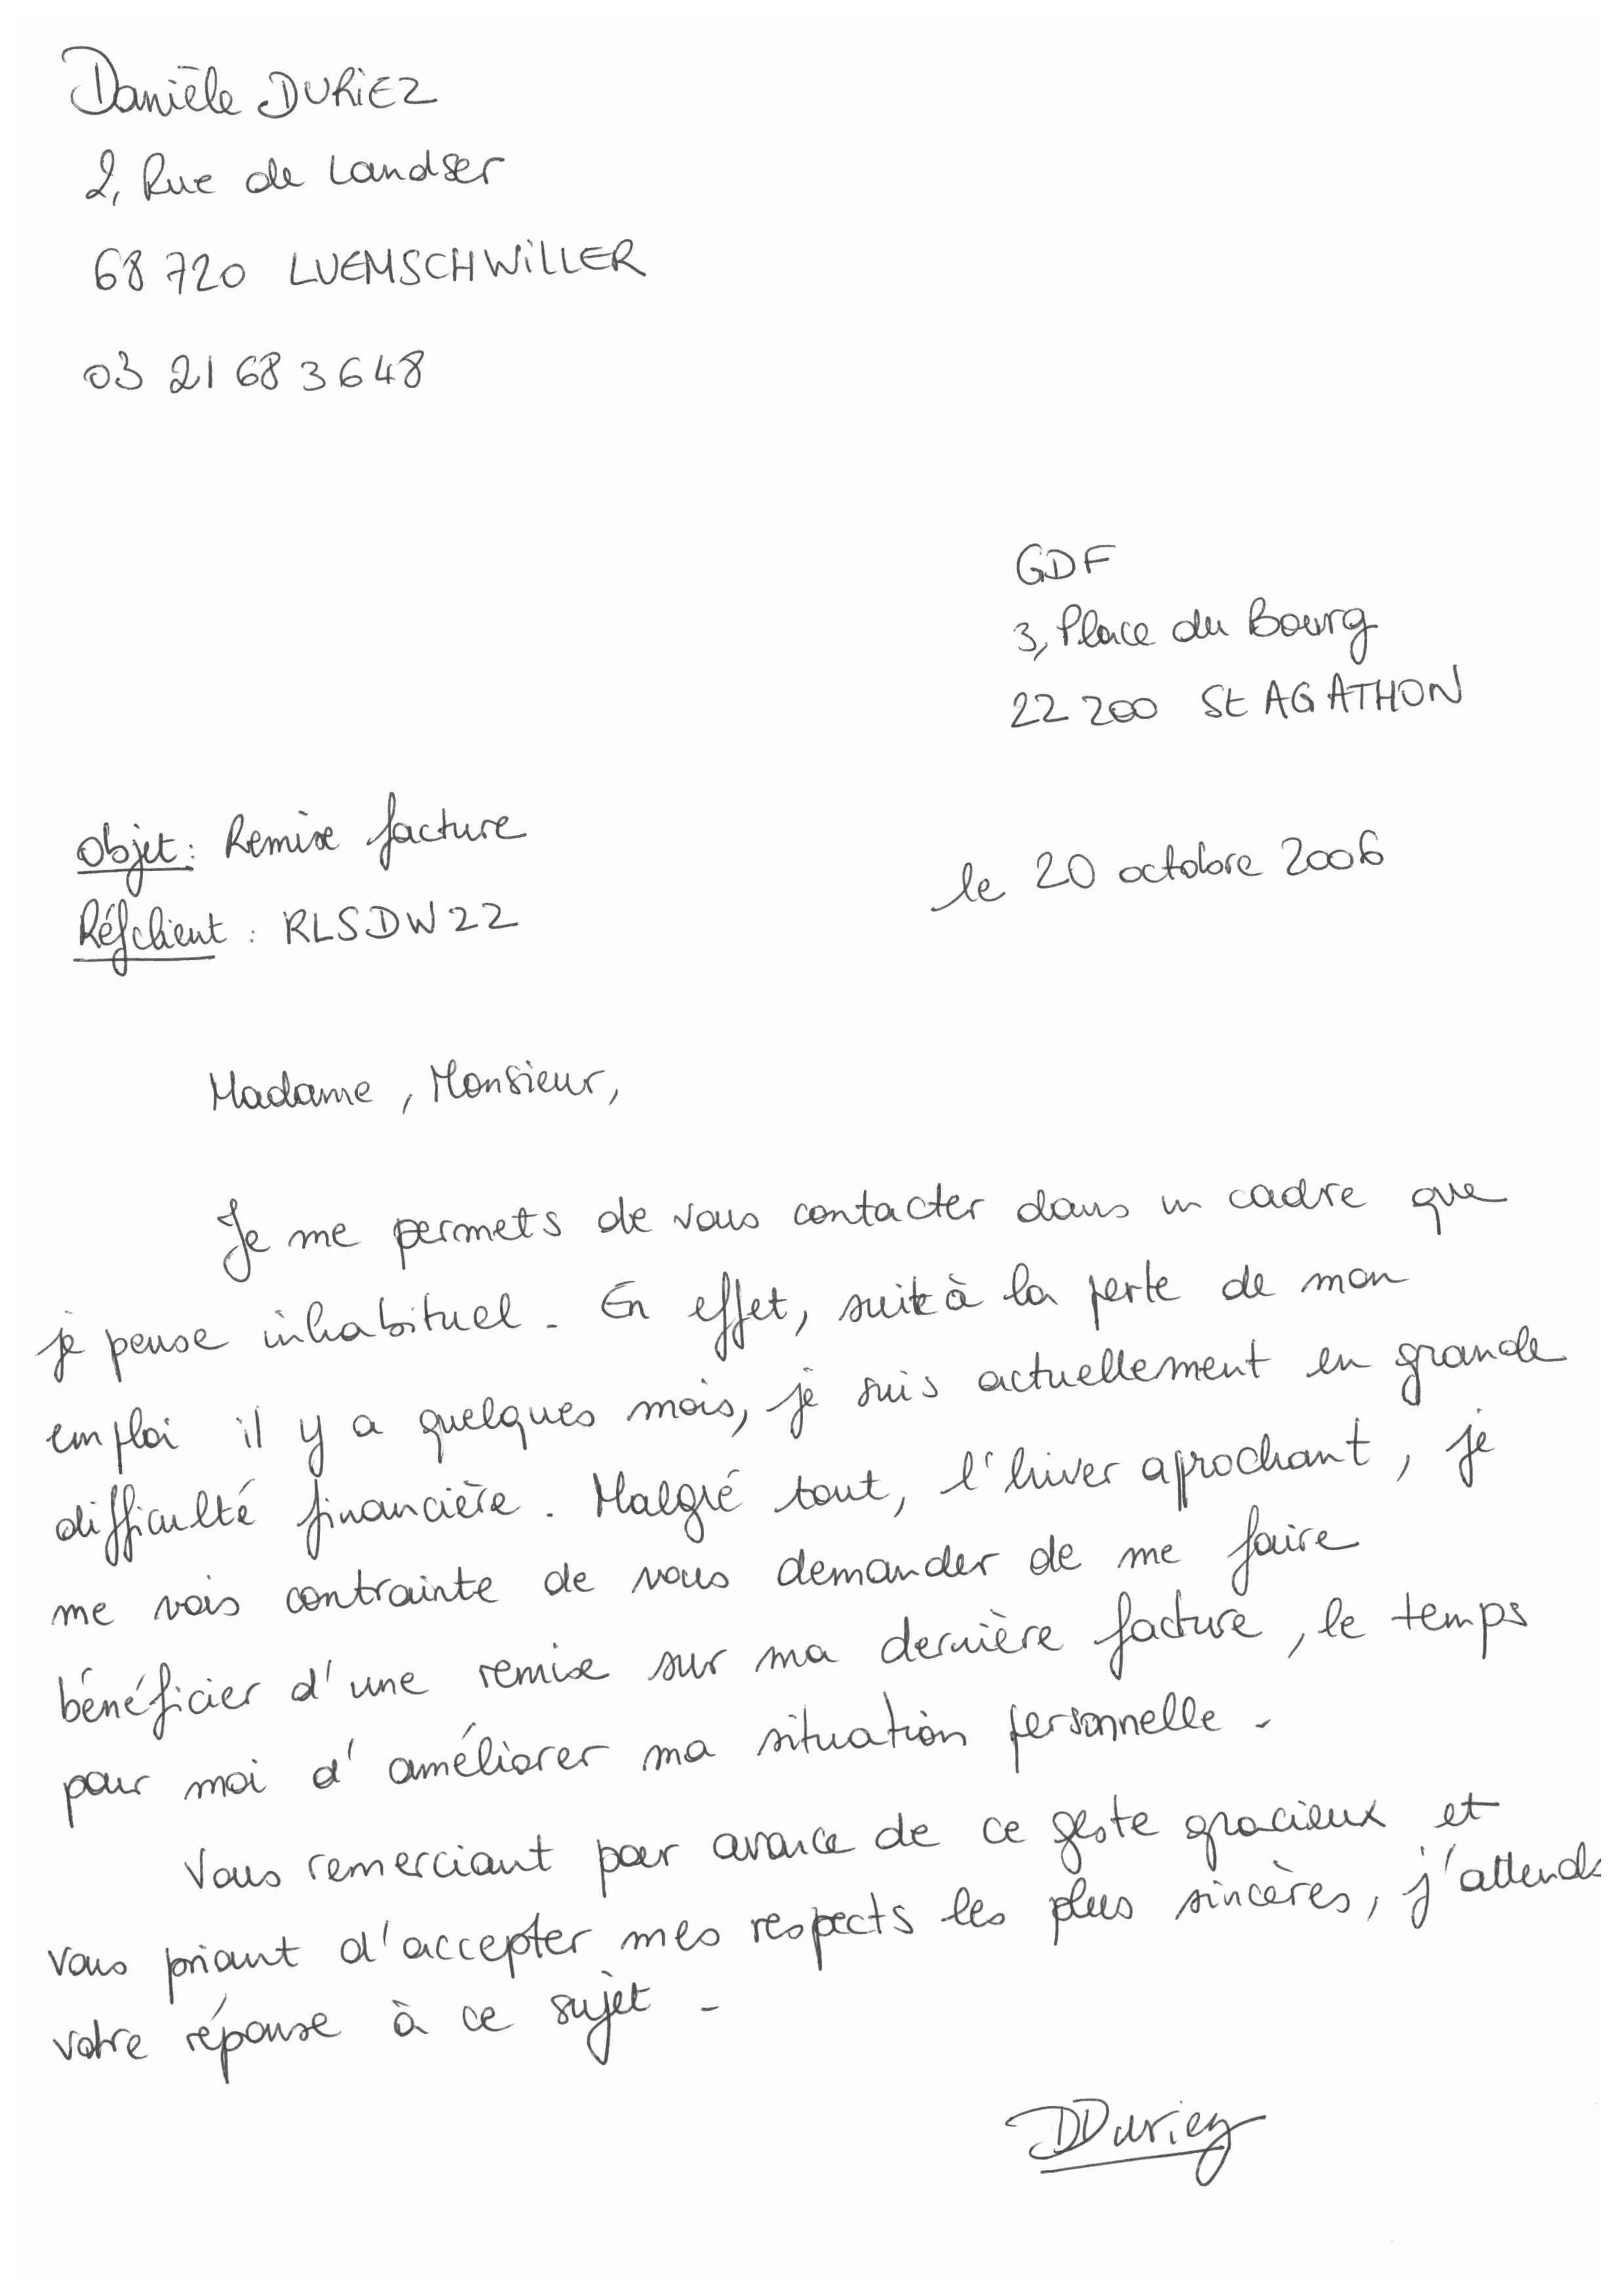 Danièle DURIEZ
2, Rue de Landser
68 720 LUEMSCHWILLER
03 21 68 36 48
GDF
3, Place du Bourg
22 200 St AGATHON
Objet : Remise facture
le 20 octobre 2006
Réf client : RLSDW22
Madame, Monsieur,
Je me permets de vous contacter dans un cadre que
je pense inhabituel. En effet, suite à la perte de mon
emploi il y a quelques mois, je suis actuellement en grande
difficulté financière. Malgré tout, l'hiver aprochant, je
me vois contrainte de vous demander de me faire
bénéficier d'une remise sur ma dernière facture, le temps
pour moi d'améliorer ma situation personnelle.
Vous remerciant par avance de ce geste gracieux et
vous priant d'accepter mes respects les plus sincères, j'attends
votre réponse à ce sujet.
DDuriez